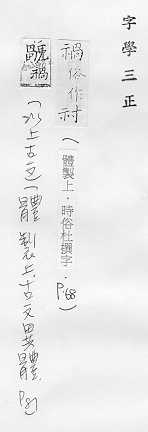 字學三正
禍俗作𥘏（體製上．時俗杜撰字．P.68）
禍（以上古文）（體製上．古文異體．P81）